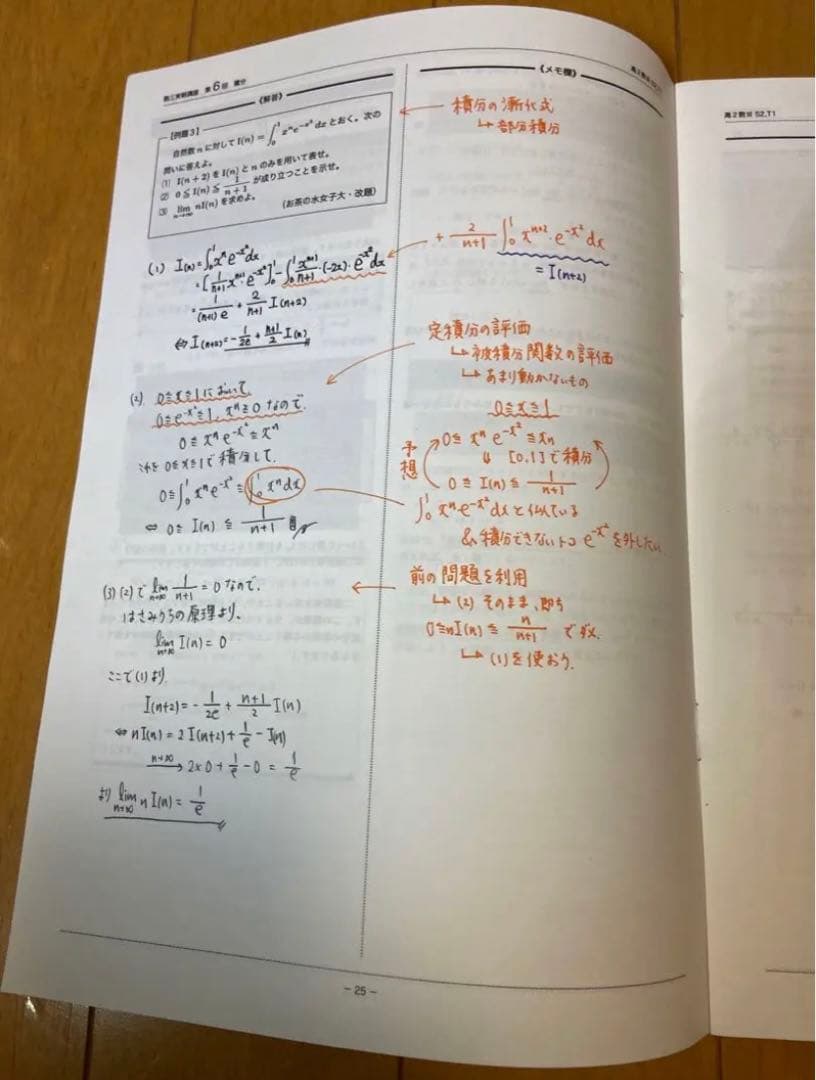 数三実戦講座 第6回 積分
《解答》
【例題3】
自然数 n に対して I(n) = ∫₀¹ xⁿe^{-x²}dx とおく。次の
問いに答えよ。
(1) I(n+2) を I(n) と n のみを用いて表せ。
(2) 0 ≦ I(n) ≦ 1/(n+1) が成り立つことを示せ。
(3) lim_{n→∞} nI(n) を求めよ。
(お茶の水女子大・改題)
(1) I(n) = ∫₀¹ xⁿe^{-x²}dx
= [1/(n+1) x^{n+1}・e^{-x²}]₀¹ - ∫₀¹ x^{n+1}/(n+1)・(-2x)・e^{-x²}dx
= 1/((n+1)e) + 2/(n+1) I(n+2)
⇔ I(n+2) = -1/(2e) + (n+1)/2 I(n)
(2) 0≦x≦1において
0≦e^{-x²}≦1, xⁿ≧0 なので
0≦xⁿe^{-x²}≦xⁿ
これを0≦x≦1で積分して
0≦∫₀¹ xⁿe^{-x²}≦∫₀¹ xⁿdx
⇔ 0≦I(n)≦1/(n+1)
(3) (2)で lim_{n→∞} 1/(n+1) = 0 なので、
はさみうちの原理より、
lim_{n→∞} I(n) = 0
ここで(1)より
I(n+2) = -1/(2e) + (n+1)/2 I(n)
⇔ nI(n) = 2I(n+2) + 1/e - I(n)
n→∞ → 2×0 + 1/e - 0 = 1/e
より lim_{n→∞} nI(n) = 1/e
《メモ欄》
高2数Ⅲ S2,T1
積分の漸化式
↳部分積分
+ 2/(n+1) ∫₀¹ x^{n+2}・e^{-x²}dx
= I(n+2)
定積分の評価
↳被積分関数の評価
↳あまり動かないもの
0≦x≦1
予想
0≦xⁿe^{-x²}≦xn
⇓ [0,1]で積分
0≦I(n)≦1/(n+1)
∫₀¹ xⁿe^{-x²}dxと似ている
& 積分できないトコ e^{-x²}を外したい
前の問題を利用
↳(2)そのまま、即ち
0≦nI(n)≦n/(n+1) でダメ
↳(1)を使おう。
- 25 -
高2数Ⅲ S2,T1